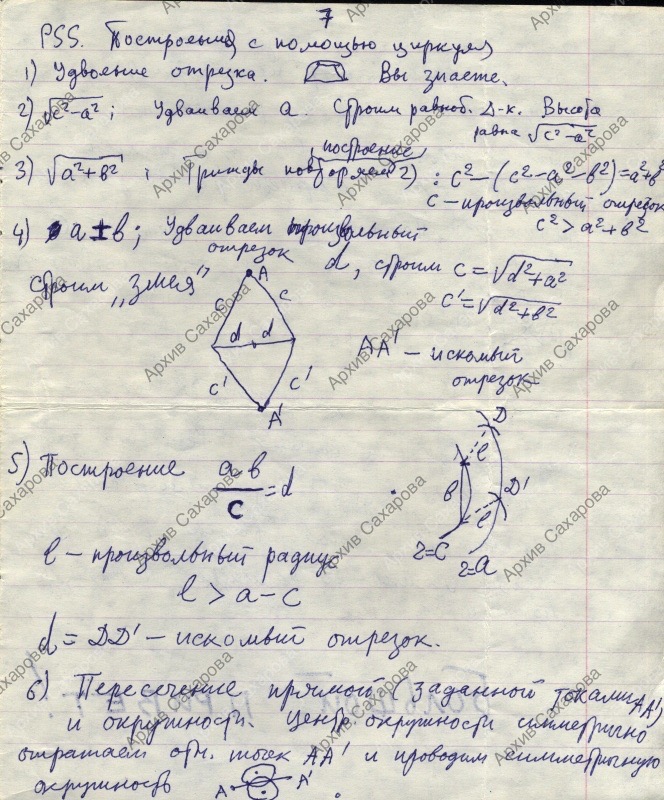 7
PSS. Построения с помощью циркуля
1) Удвоение отрезка. Вы знаете.
2) √c²-a²; Удваиваем a. Строим равноб. Δ-к. Высота
равна √c²-a²
построение
3) √a²+b²; Трижды повторяем 2) : c²-(c²-a²-b²)=a²+b²
c - произвольный отрезок
c²>a²+b²
4) a±b; Удваиваем произвольный
отрезок d, строим c=√d²+a²
строим „змея" c'=√d²+b²
A
c c
d d
c' c'
A'
AA' - искомый
отрезок
5) Построение ab/c=d
D
l
b
D'
l
r=c
r=a
l - произвольный радиус
l > a-c
d = DD' - искомый отрезок.
6) Пересечение прямой (заданной токами AA')
и окружности. Центр окружности симметрично
отражаем отн. точек AA' и проводим симметричную
окружность A A'
Архив Сахарова